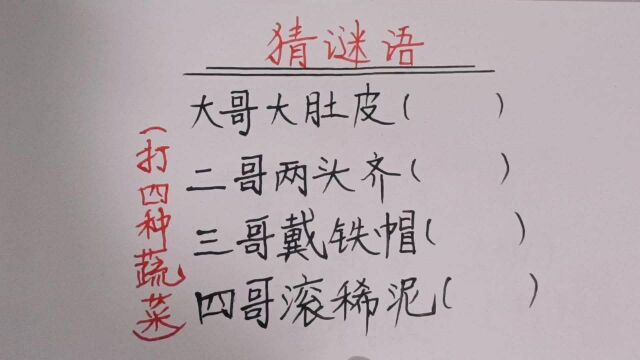 猜谜语
(打四种蔬菜)
大哥大肚皮( )
二哥两头齐( )
三哥戴铁帽( )
四哥滚稀泥( )